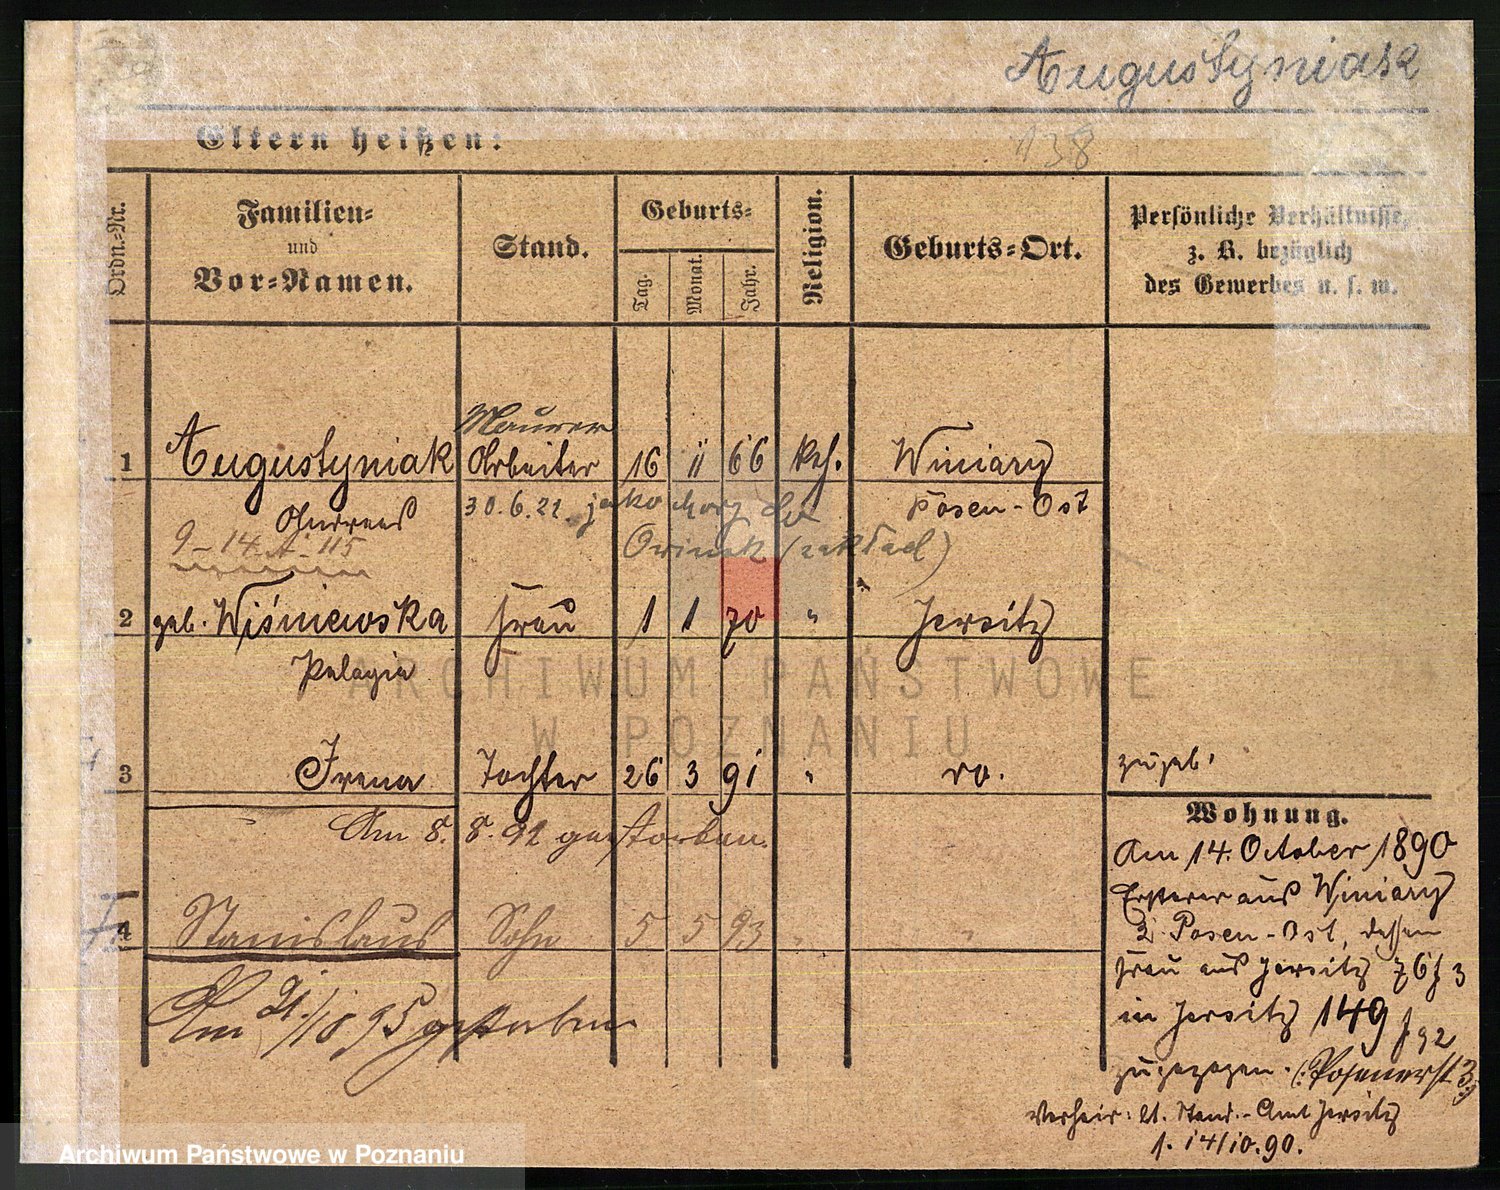 Augustyniak
138
Eltern heißen:
Ordn.-Nr.
Familien-
und
Vor-Namen.
Stand.
Geburts-
Tag.
Monat.
Jahr.
Religion.
Geburts-Ort.
Persönliche Verhältnisse,
z. B. bezüglich
des Gewerbes u. s. w.
Maurer
1 Augustyniak Arbeiter 16 11 66 kth. Winiary
Andreas 30.6.22. jako chory do Posen-Ost
9-14 A-115 Owinsk (zakład)
2 geb. Wiśniewska Frau 1 1 70 " Jersitz
Pelagia
3 Irena Tochter 26 3 91 " ro. zugeb.
Am 8. 8. 92 gestorben.
4 Stanislaus Sohn 5 5 93 " "
Am 21./1 95 gestorben
Wohnung.
Am 14. October 1890
Ersterer aus Winiary
Posen-Ost, dessen
Frau aus Jersitz 76
in Jersitz 149
zugezogen. (Posenerst 33
Verheir: lt. Stand.-Amt Jersitz
1. 14/10.90.
ARCHIWUM PAŃSTWOWE
W POZNANIU
Archiwum Państwowe w Poznaniu